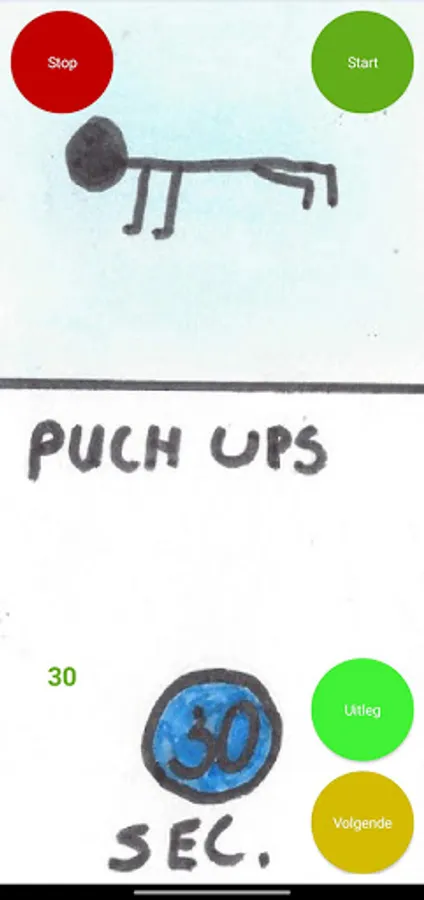 Stop
Start
PUCH UPS
30
30
Uitleg
SEC.
Volgende